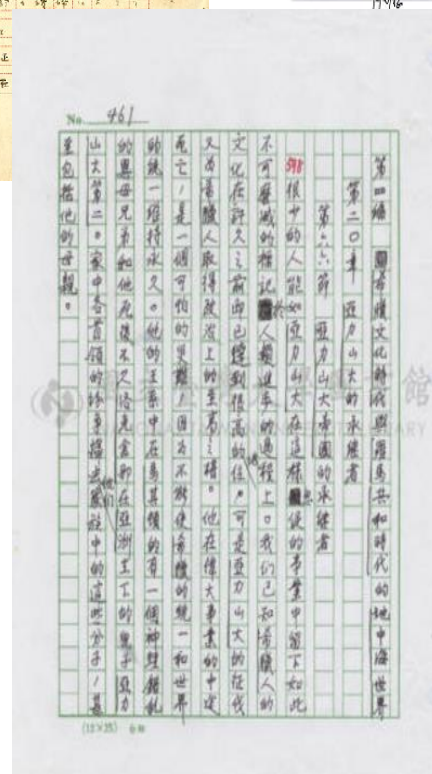 No. 461
第四編 希臘文化時代與羅馬共和時代的地中海世界
第二〇章 亞力山大的承繼者
第六六節 亞力山大帝國的承繼者
598 很少的人能如亞力山大在這樣短促的事業中留下如此
不可磨滅的標記於人類進步的過程上。我們已知希臘人的
文化在許久之前即已達到很高的 可是亞力山大的征伐
又為希臘人取得政治上的至高之權。他在偉大事業的中途
死亡,是一個可怕的災難,因為不能使希臘的統一和世界
的統一維持永久。他的王系中在馬其頓的有一個神經錯亂
的異母兄弟和他死後不久 在亞洲生下的男子亞力
山大第二。家中各首領的 他們 族中的這些分子,甚
至包括他的母親。
(12×25)